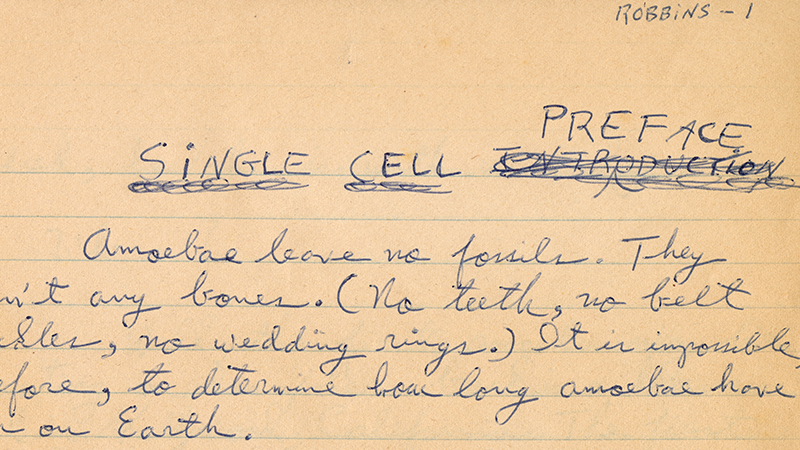 ROBBINS - 1
PREFACE
SINGLE CELL INTRODUCTION
Amoebae leave no fossils. They
n't any bones. (No teeth, no belt
kles, no wedding rings.) It is impossible,
efore, to determine how long amoebae have
n on Earth.